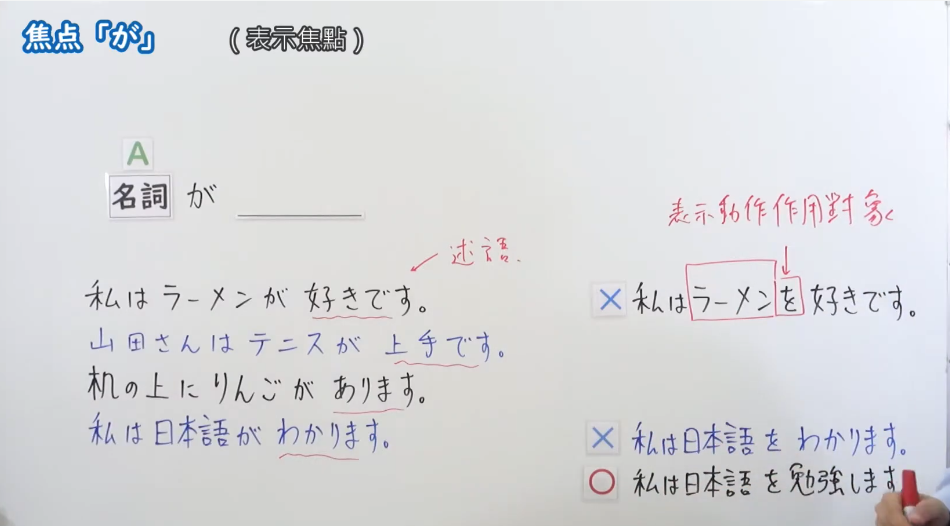 焦点「が」 (表示焦點)
A
名詞 が
表示動作作用對象
述語
私は ラーメンが 好きです。
山田さんは テニスが 上手です。
机の上に りんごが あります。
私は日本語が わかります。
× 私はラーメンを 好きです。
× 私は日本語を わかります。
○ 私は日本語を勉強します